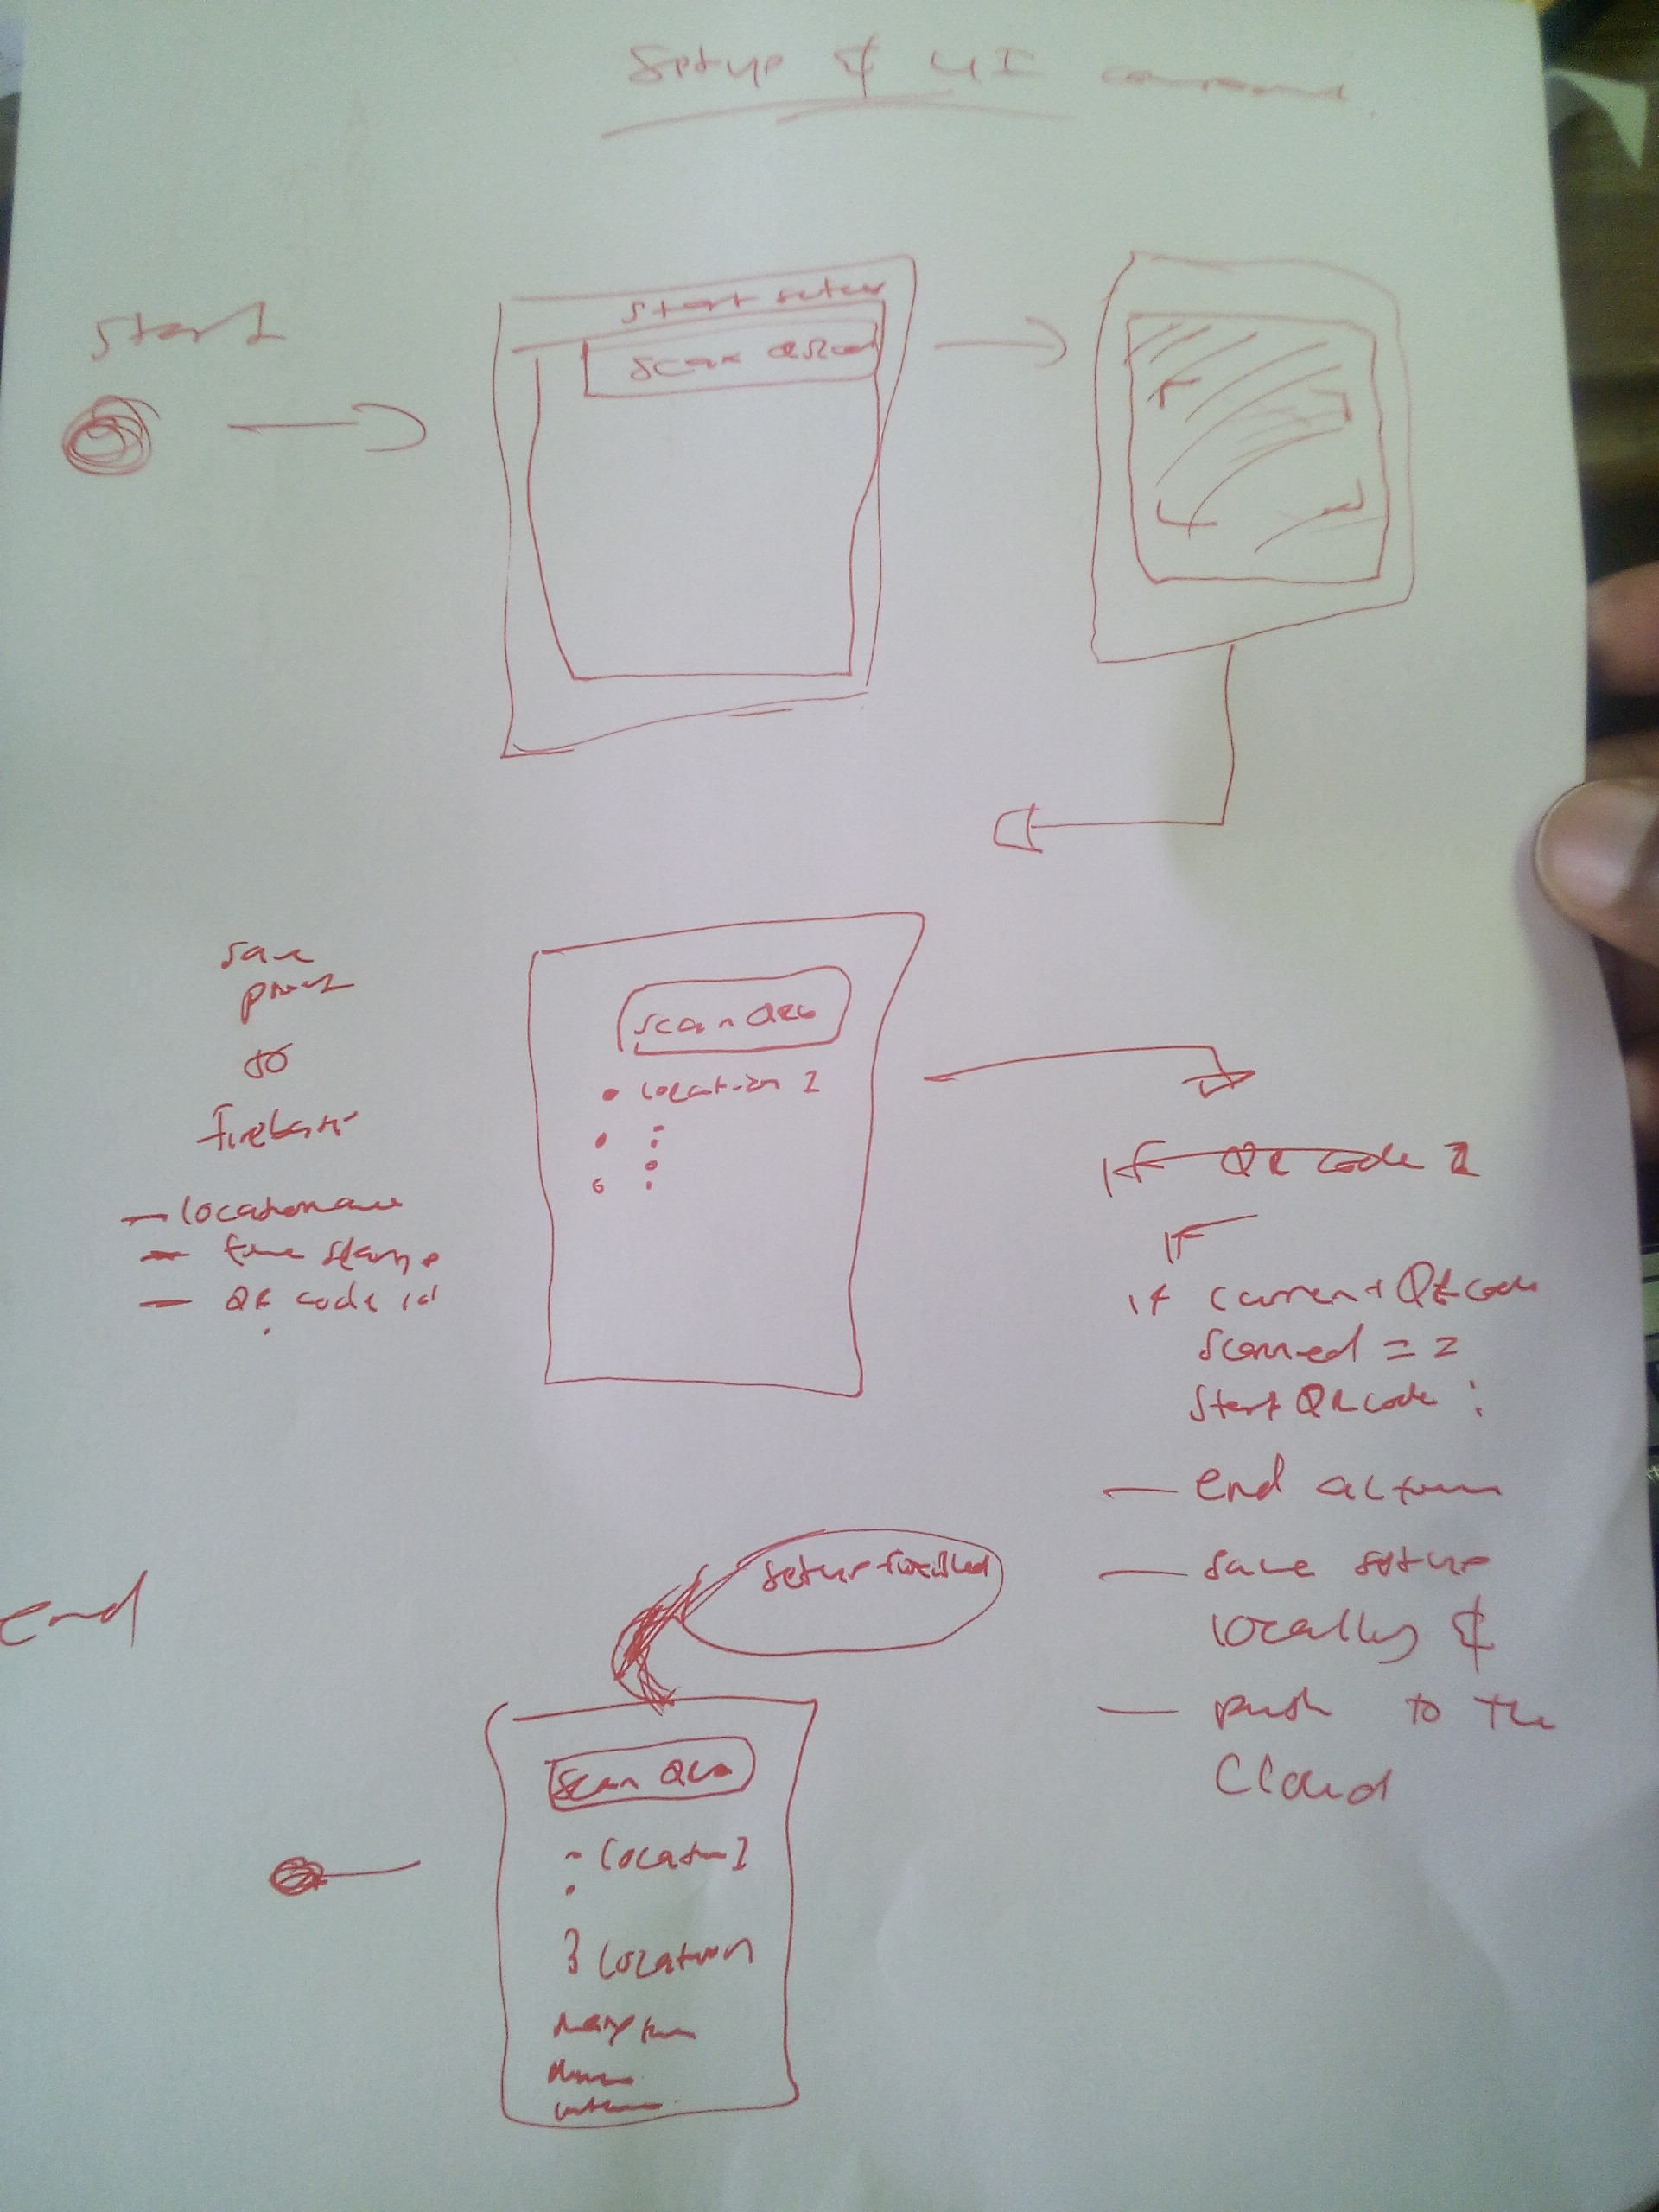 Setup & UI
Start
Start setup
Scan QRcode
Save
to
Firebase
- location name
- time stamp
- QR code id
Scan QRCo
• location 1
If QR code 1
IF
if current QR code
Scanned = =
Start QR code :
- end action
- save setup
locally &
- push to the
Cloud
end
setup finished
Scan QRCo
- location 1
3 location